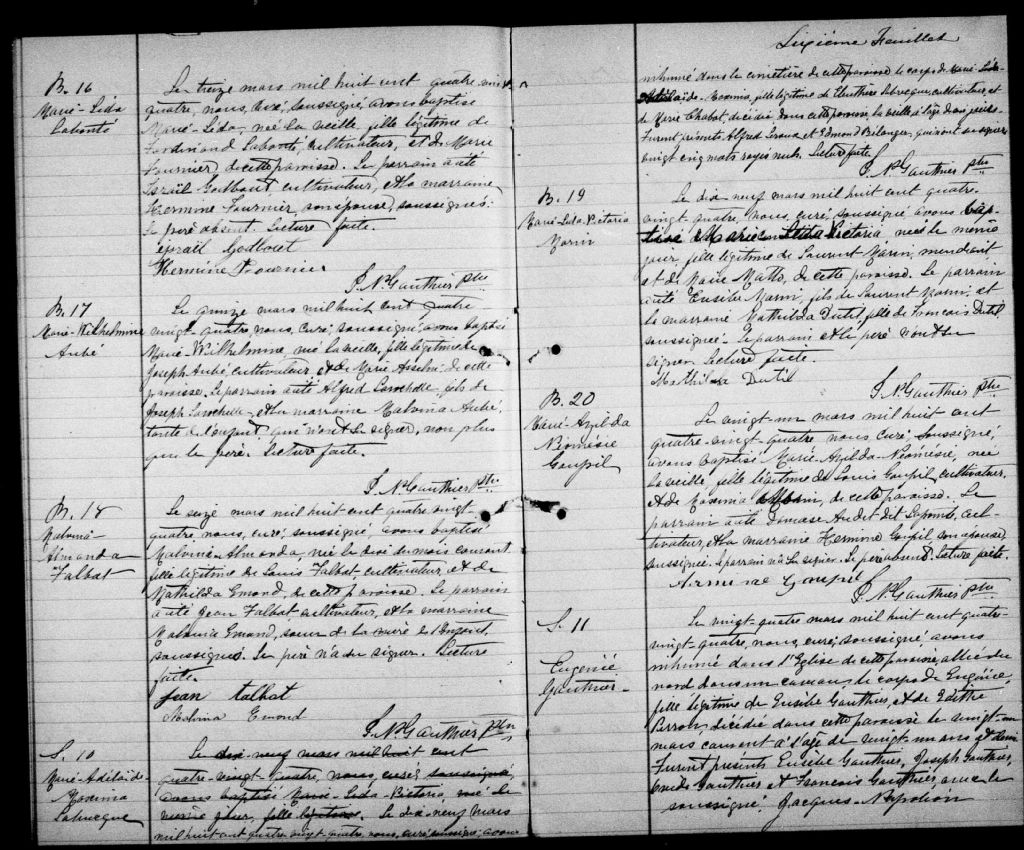 B. 16
Marie-Lida
Labonté
Le treize mars mil huit cent quatre vingt
quatre, nous, curé, soussigné, avons baptisé
Marie-Lida, née la veille, fille légitime de
Ferdinand Labonté, cultivateur, et de Marie
Fournier, de cette paroisse. Le parrain a été
Israël Godbout cultivateur, et la marraine
Hermine Fournier, son épouse, soussignés.
Le père absent. Lecture faite.
Israël Godbout
Hermine Fournier
J. N. Gauthier Ptre
B. 17
Marie-Wilhelmine
Aubé
Le quinze mars mil huit cent quatre
vingt-quatre nous, curé, soussigné, avons baptisé
Marie-Wilhelmine, née la veille, fille légitime de
Joseph Aubé cultivateur et de Marie Asselin de cette
paroisse. Le parrain a été Alfred Larochelle, fils de
Joseph Larochelle, et la marraine Malvina Aubé,
tante de l'enfant, qui n'ont su signer, non plus
que le père. Lecture faite.
J. N. Gauthier Ptre
B. 18
Malvina-
Almonda
Talbat
Le seize mars mil huit cent quatre vingt-
quatre, nous, curé, soussigné, avons baptisé
Malvina-Almonda, née le du mois courant
fille légitime de Louis Talbat, cultivateur, et de
Mathilda Emond, de cette paroisse. Le parrain
a été Jean Talbat, cultivateur, et la marraine
Malvina Emond, soeur de la mère de l'enfant,
soussignés. Le père n'a su signer. Lecture
faite.
Jean talbat
Malvina Emond
J. N. Gauthier Ptre
S. 10
Marie-Adélaïde-
Labrecque
Le dix-neuf mars mil huit cent
quatre-vingt-quatre, nous, curé, soussigné,
avons baptisé Marie-Lida-Victoria, née le
même jour, fille légitime. Le dix-neuf mars
mil huit cent quatre vingt-quatre, nous, curé, soussigné, avons
Sixième Feuillet
inhumé dans le cimetière de cette paroisse le corps de Marie
Adélaïde, fille légitime de Eleuthère Labrecque, cultivateur, et
de Marie Chabot, décédée dans cette paroisse, la veille à l'âge de jours.
Furent présents Alfred Giroux et Edmond Bélanger, qui n'ont su signer.
Vingt cinq mots rayés nuls. Lecture faite.
J. N. Gauthier Ptre
B. 19
Marie-Lida-Victoria
Morin
Le dix neuf mars mil huit cent quatre-
vingt quatre, nous, curé, soussigné avons bap-
tisé Marie Lida Victoria née le même
jour, fille légitime de Laurent Morin, mendiant
et de Marie, de cette paroisse. Le parrain
a été Eusèbe Morin, fils de Laurent Morin, et
la marraine Mathilda Dutil, fille de François Dutil
soussignée. Le parrain et le père n'ont su
signer. Lecture faite.
Mathilda Dutil
J. N. Gauthier Ptre
B. 20
Marie-Azilda
Néomésie
Goupil
Le vingt-un mars mil huit cent
quatre-vingt-quatre nous, curé, soussigné,
avons baptisé Marie-Azilda-Néomésie, née
la veille, fille légitime de Louis Goupil cultivateur,
et de, de cette paroisse. Le
parrain a été Damase Audet dit Lapointe, cul-
tivateur, et la marraine Hermine Goupil son épouse,
soussignée. Le parrain n'a su signer. Le père absent. Lecture faite.
Arminae Goupil
J. N. Gauthier Ptre
S. 11
Eugénie
Gauthier
Le vingt-quatre mars mil huit cent quatre-
vingt-quatre, nous, curé, soussigné avons
inhumé dans l'Eglise de cette paroisse, allée du
nord dans un caveau le corps de Eugénie,
fille légitime de Eusèbe Gauthier, et de
Perron, décédée dans cette paroisse le vingt-un
mars courant à l'âge de vingt-un ans et demi
Furent présents Eusèbe Gauthier, Joseph Gauthier,
Gauthier et François Gauthier avec le
soussigné Jacques-Napoléon